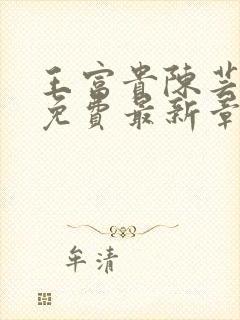 王富貴陳芸
免費最新章
牟清